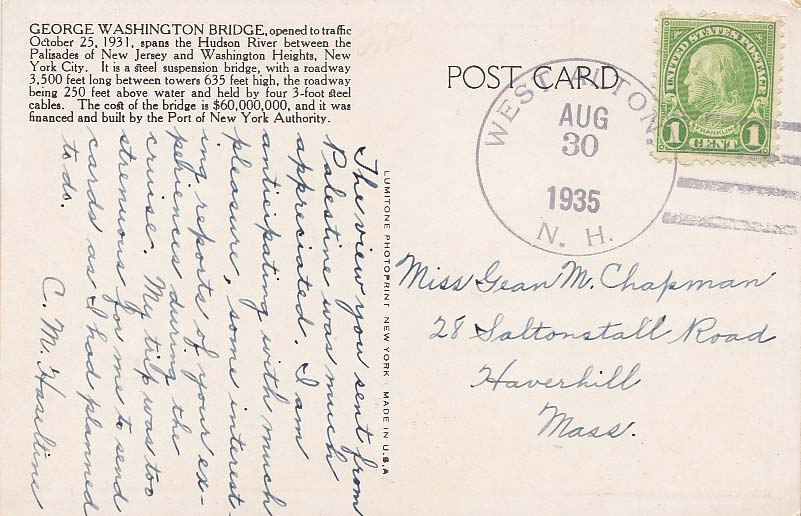 GEORGE WASHINGTON BRIDGE, opened to traffic
October 25, 1931, spans the Hudson River between the
Palisades of New Jersey and Washington Heights, New
York City. It is a steel suspension bridge, with a roadway
3,500 feet long between towers 635 feet high, the roadway
being 250 feet above water and held by four 3-foot steel
cables. The cost of the bridge is $60,000,000, and it was
financed and built by the Port of New York Authority.
The view you sent from
Palestine was much
appreciated. I am
anticipating with much
pleasure, some interest-
ing reports of your ex-
periences during the
cruise. My trip was too
strenuous for me to send
cards as I had planned
to do.
C. M. Haseltine
LUMITONE PHOTOPRINT NEW YORK · MADE IN U.S.A
POST CARD
WEST ALTON.
AUG
30
1935
N. H.
UNITED STATES POSTAGE
FRANKLIN
1 CENT 1
Miss Jean M. Chapman
28 Saltonstall Road
Haverhill
Mass.